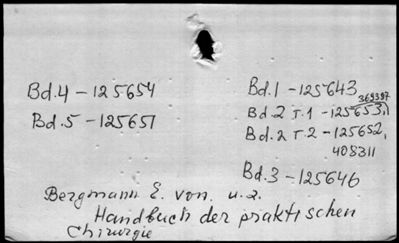 Bd.4 - 125654
Bd.5 - 125651
Bd.1 - 125643
369397
Bd.2 T.1 - 125653,
Bd.2 T.2 - 125652,
408311
Bd.3 - 125646
Bergmann E. von. u.a.
Handbuch der praktischen
Chirurgie